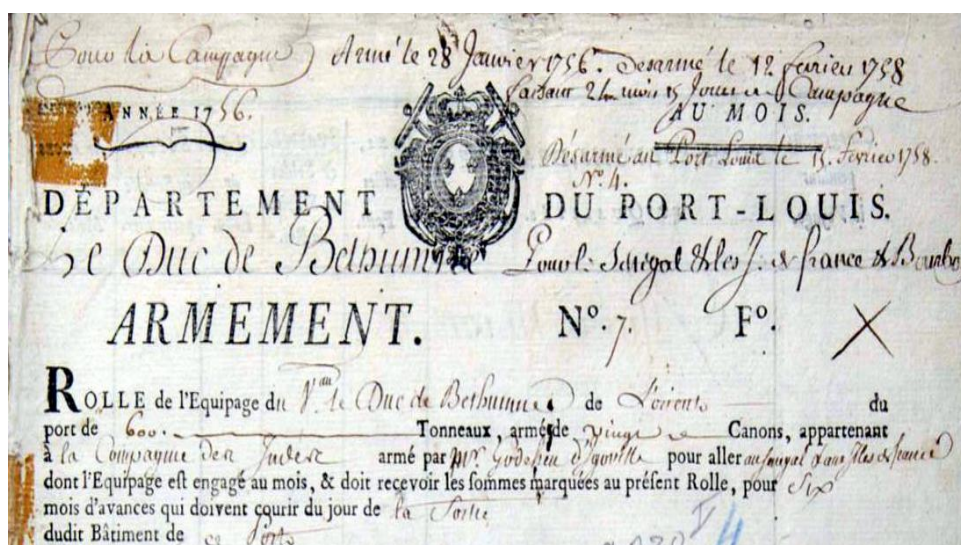 Pour la Campagne Armé le 28 Janvier 1756. Desarmé le 12 fevrier 1758
faisant 24 mois 15 Jours de Campagne
ANNÉE 1756. AU MOIS.
Désarmé au Port Louis le 15. fevrier 1758.
N° 4.
DÉPARTEMENT DU PORT-LOUIS.
Le Duc de Bethunne Pour le Sénégal & les J. de france & Bourbo
ARMEMENT. Nº. 7. Fº. X
ROLLE de l'Equipage du Vau. le Duc de Bethunne de L'orient du
port de 600. Tonneaux, armé de vingt Canons, appartenant
à la Compagnie des Indes armé par Mr. Godeheu d'Igoville pour aller au Senegal & aux Jsles de france
dont l'Equipage est engagé au mois, & doit recevoir les sommes marquées au présent Rolle, pour Six
mois d'avances qui doivent courir du jour de la Sortie
dudit Bâtiment de ce Port